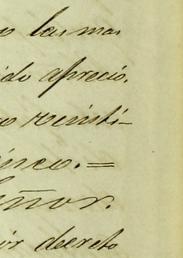 o las mas
ido aprecio.
o veinti-
inco.=
eñor.
or decreto